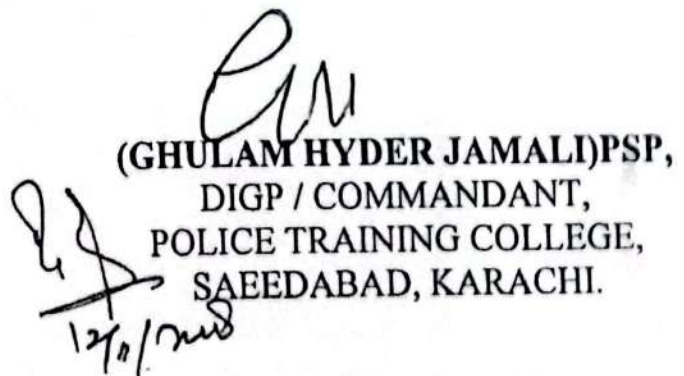 (GHULAM HYDER JAMALI)PSP,
DIGP / COMMANDANT,
POLICE TRAINING COLLEGE,
SAEEDABAD, KARACHI.